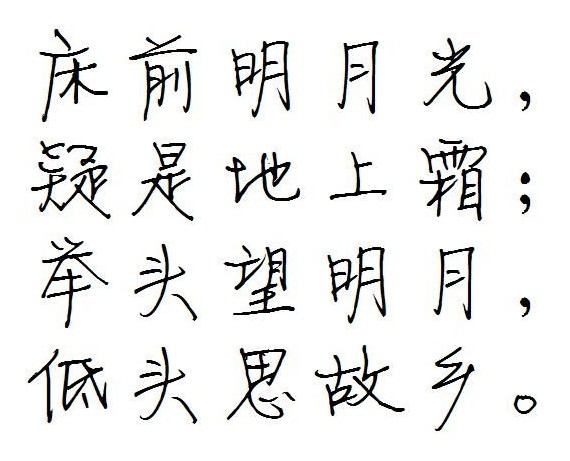 床前明月光，
疑是地上霜；
举头望明月，
低头思故乡。